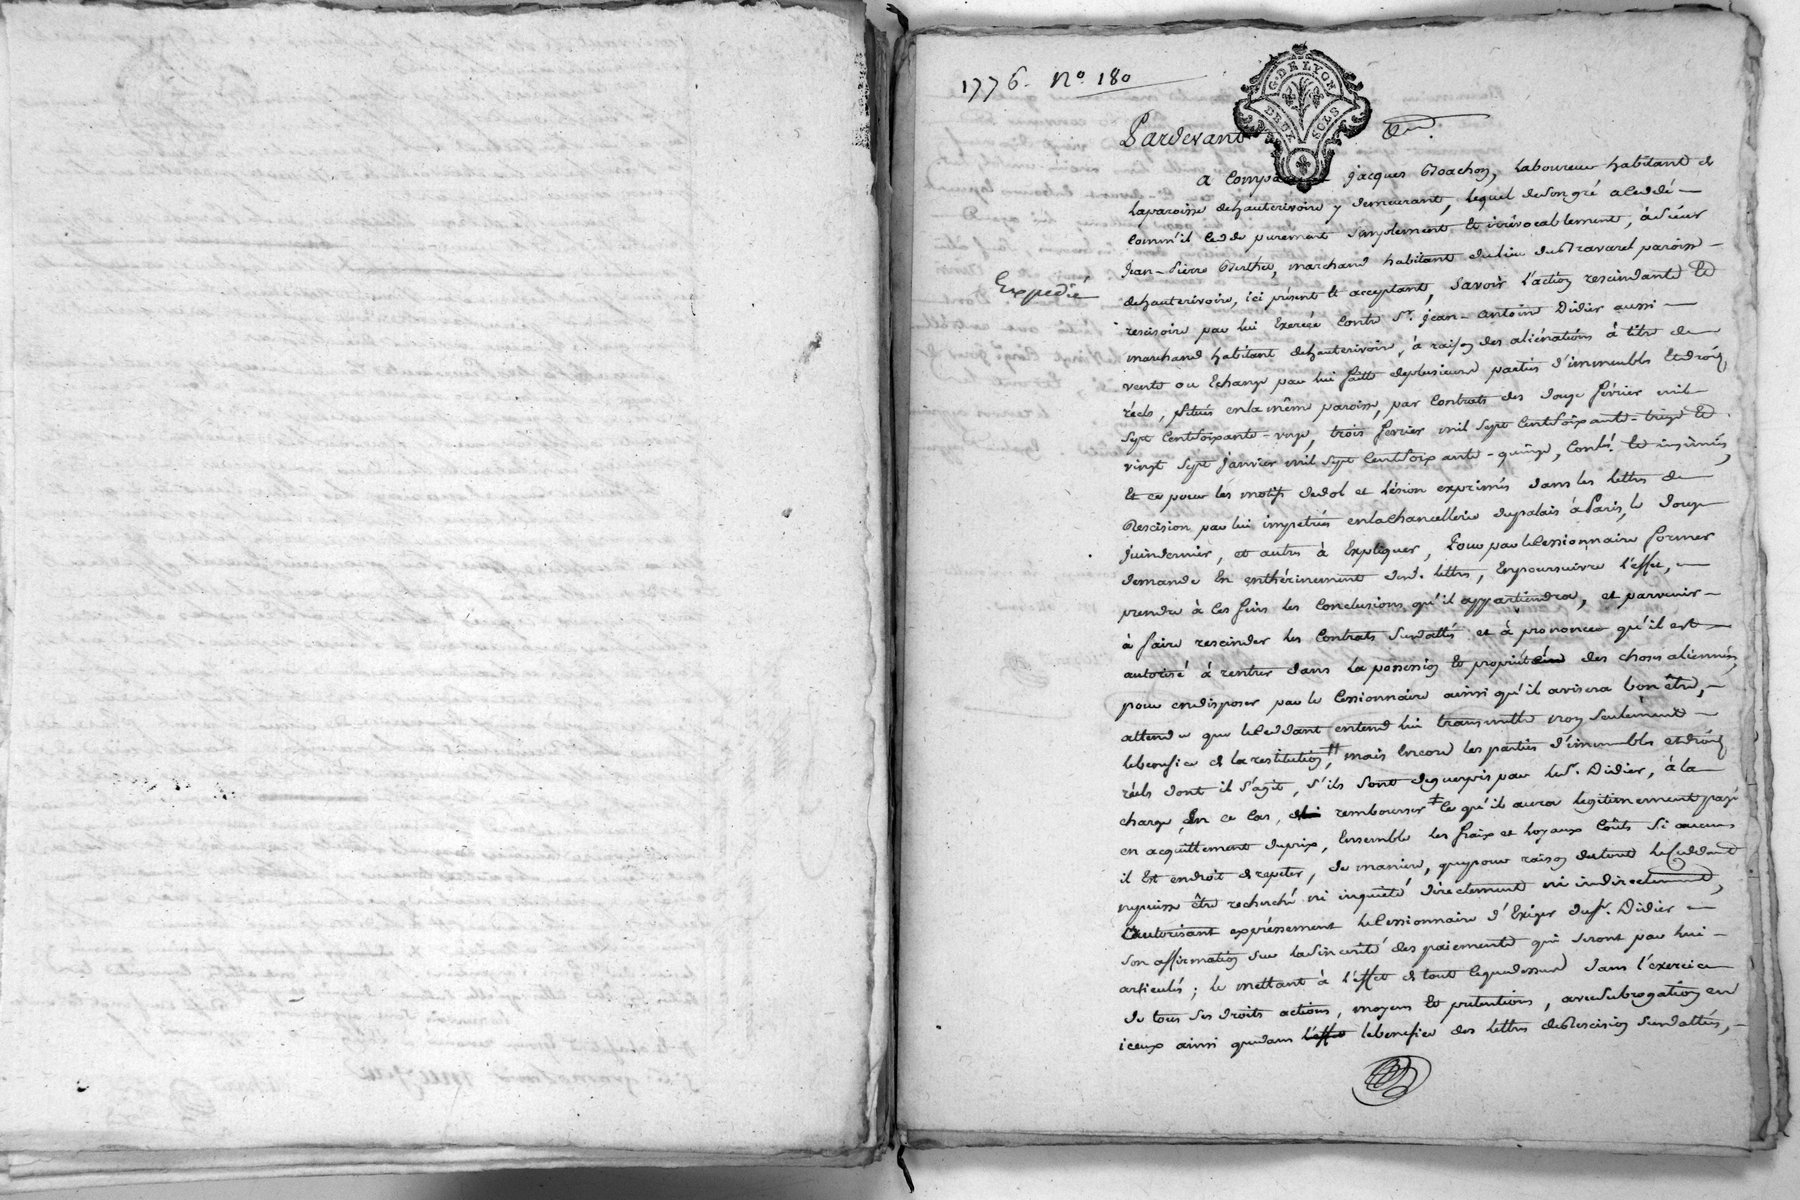 1776. N.° 180
G. DE LYON
DEUX SOLS
Pardevant &c.
a Comparu Jacques Goachon, laboureur habitant de
laparoisse dehauterivoire y demeurant, lequel desongré a Cedé
Comm'il Cede purement simplement et irrévocablement, à sieur
Jean-Pierre Berthe, marchand habitant dulieu de paroisse
Expedié
dehauterivoire, ici présent et acceptant, savoir l'action rescindante et
rescisoire par lui Exercée Contre Sr. Jean-Antoine Didier aussi
marchand habitant dehauterivoire, à raison des aliénations à titre de
vente ou Echange par lui faitte deplusieurs parties d'immeubles et droits
réels, situés enla même paroisse, par Contrats des douze février mil
sept Centsoixante-onze, trois fevrier mil sept Centsoixante-treize et
vingt sept janvier mil sept Centsoixante-quinze, Contlés. et insinués,
Et ce pour les motifs dedol et lésion exprimés dans les lettres de
Rescision par lui impetrées enlachancellerie dupalais à Paris, le douze
juindernier, et autres à Expliquer, Pour par leCessionnaire former
demande En enthérinement desd. lettres, En poursuivre l'effet,
prendre à Ces fins les Conclusions qu'il appartiendra, et parvenir
à faire rescinder les Contrats Surdattés et à prononcer qu'il est
autorisé à rentrer dans la possession et propriété des choses aliennées,
pour endisposer par le Cessionnaire ainsi qu'il avisera bon être,
attendu que leCeddant entend lui transmettre non seulement
lebenefice de la restitution, mais Encore les parties d'immeubles et droits
réels dont il s'agit, s'ils sont deguerpis par leSr. Didier, à la
charge, En ce Cas, de rembourser ce qu'il aura legitimement payé
en acquittement duprix, Ensemble les fraix et loyaux Coûts si aucuns
il Est endroit de repeter, de maniere, quepour raison detout leCeddant
nepuisse être recherché ni inquiété directement ni indirectement,
autorisant expréssement leCessionnaire d'Exiger duSr. Didier
son affirmation sur lasincerité des paiements qui seront par lui
articulés; le mettant à l'effet de tout Cequedessus dans l'exercice
de tous ses droits actions, moyens et pretentions, avecsubrogation en
iceux ainsi quedans l'effet lebenefice des lettres deRescision Surdattées,